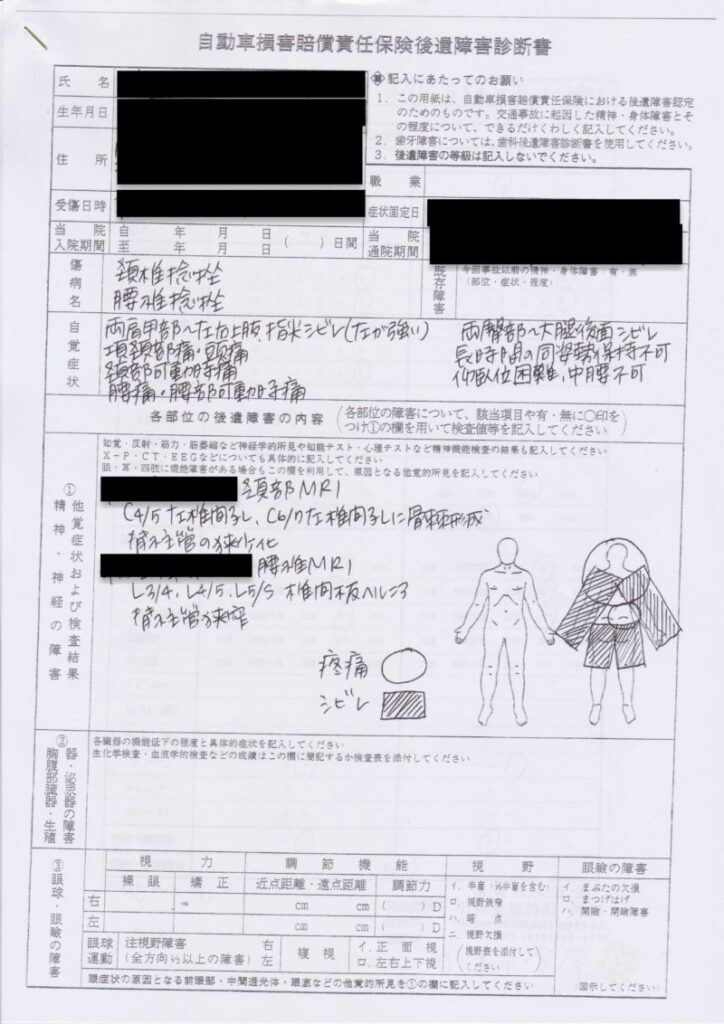 自動車損害賠償責任保険後遺障害診断書
氏 名
生年月日
住 所
受傷日時
当 院
入院期間
自 年 月 日
至 年 月 日
( )日間
記入にあたってのお願い
1. この用紙は、自動車損害賠償責任保険における後遺障害認定
のためのものです。交通事故に起因した精神・身体障害とそ
の程度について、できるだけくわしく記入してください。
2. 歯牙障害については、歯科後遺障害診断書を使用してください。
3. 後遺障害の等級は記入しないでください。
職 業
症状固定日
当 院
通院期間
傷病名
頚椎捻挫
腰椎捻挫
既存障害
今回事故以前の精神・身体障害:有・無
(部位・症状・程度)
自覚症状
両肩甲部〜左右上肢、指尖シビレ(左が強い)
項頚部痛・頭痛
頚部可動時痛
腰痛・腰部可動時痛
両臀部〜大腿後面シビレ
長時間の同姿勢保持不可
仰臥位困難、中腰不可
各部位の後遺障害の内容
(各部位の障害について、該当項目や有・無に○印を
つけ①の欄を用いて検査値等を記入してください)
①精神・神経の障害 他覚症状および検査結果
知覚・反射・筋力・筋萎縮など神経学的所見や知能テスト・心理テストなど精神機能検査の結果も記入してください
X-P・CT・EEGなどについても具体的に記入してください
眼・耳・四肢に機能障害がある場合もこの欄を利用して、原因となる他覚的所見を記入してください
頚部MRI
C4/5左椎間孔、C6/7左椎間孔に骨棘形成
脊柱管の狭小化
腰椎MRI
L3/4、L4/5、L5/S 椎間板ヘルニア
脊柱管狭窄
疼痛
シビレ
②胸腹部臓器・生殖器・泌尿器の障害
各臓器の機能低下の程度と具体的症状を記入してください
生化学検査・血液学的検査などの成績はこの欄に簡記するか検査表を添付してください
③眼球・眼瞼の障害
視 力
調 節 機 能
視 野
眼瞼の障害
裸 眼
矯 正
近点距離・遠点距離
調節力
右
cm cm ( )D
左
cm cm ( )D
イ. 半盲(¼半盲を含む)
ロ. 視野狭窄
ハ. 暗 点
ニ. 視野欠損
(視野表を添付して
ください)
イ. まぶたの欠損
ロ. まつげはげ
ハ. 開瞼・閉瞼障害
眼球
運動
注視野障害
(全方向½以上の障害)
右
左
複 視
イ. 正 面 視
ロ. 左右上下視
眼症状の原因となる前眼部・中間透光体・眼底などの他覚的所見を①の欄に記入してください
(図示してください)